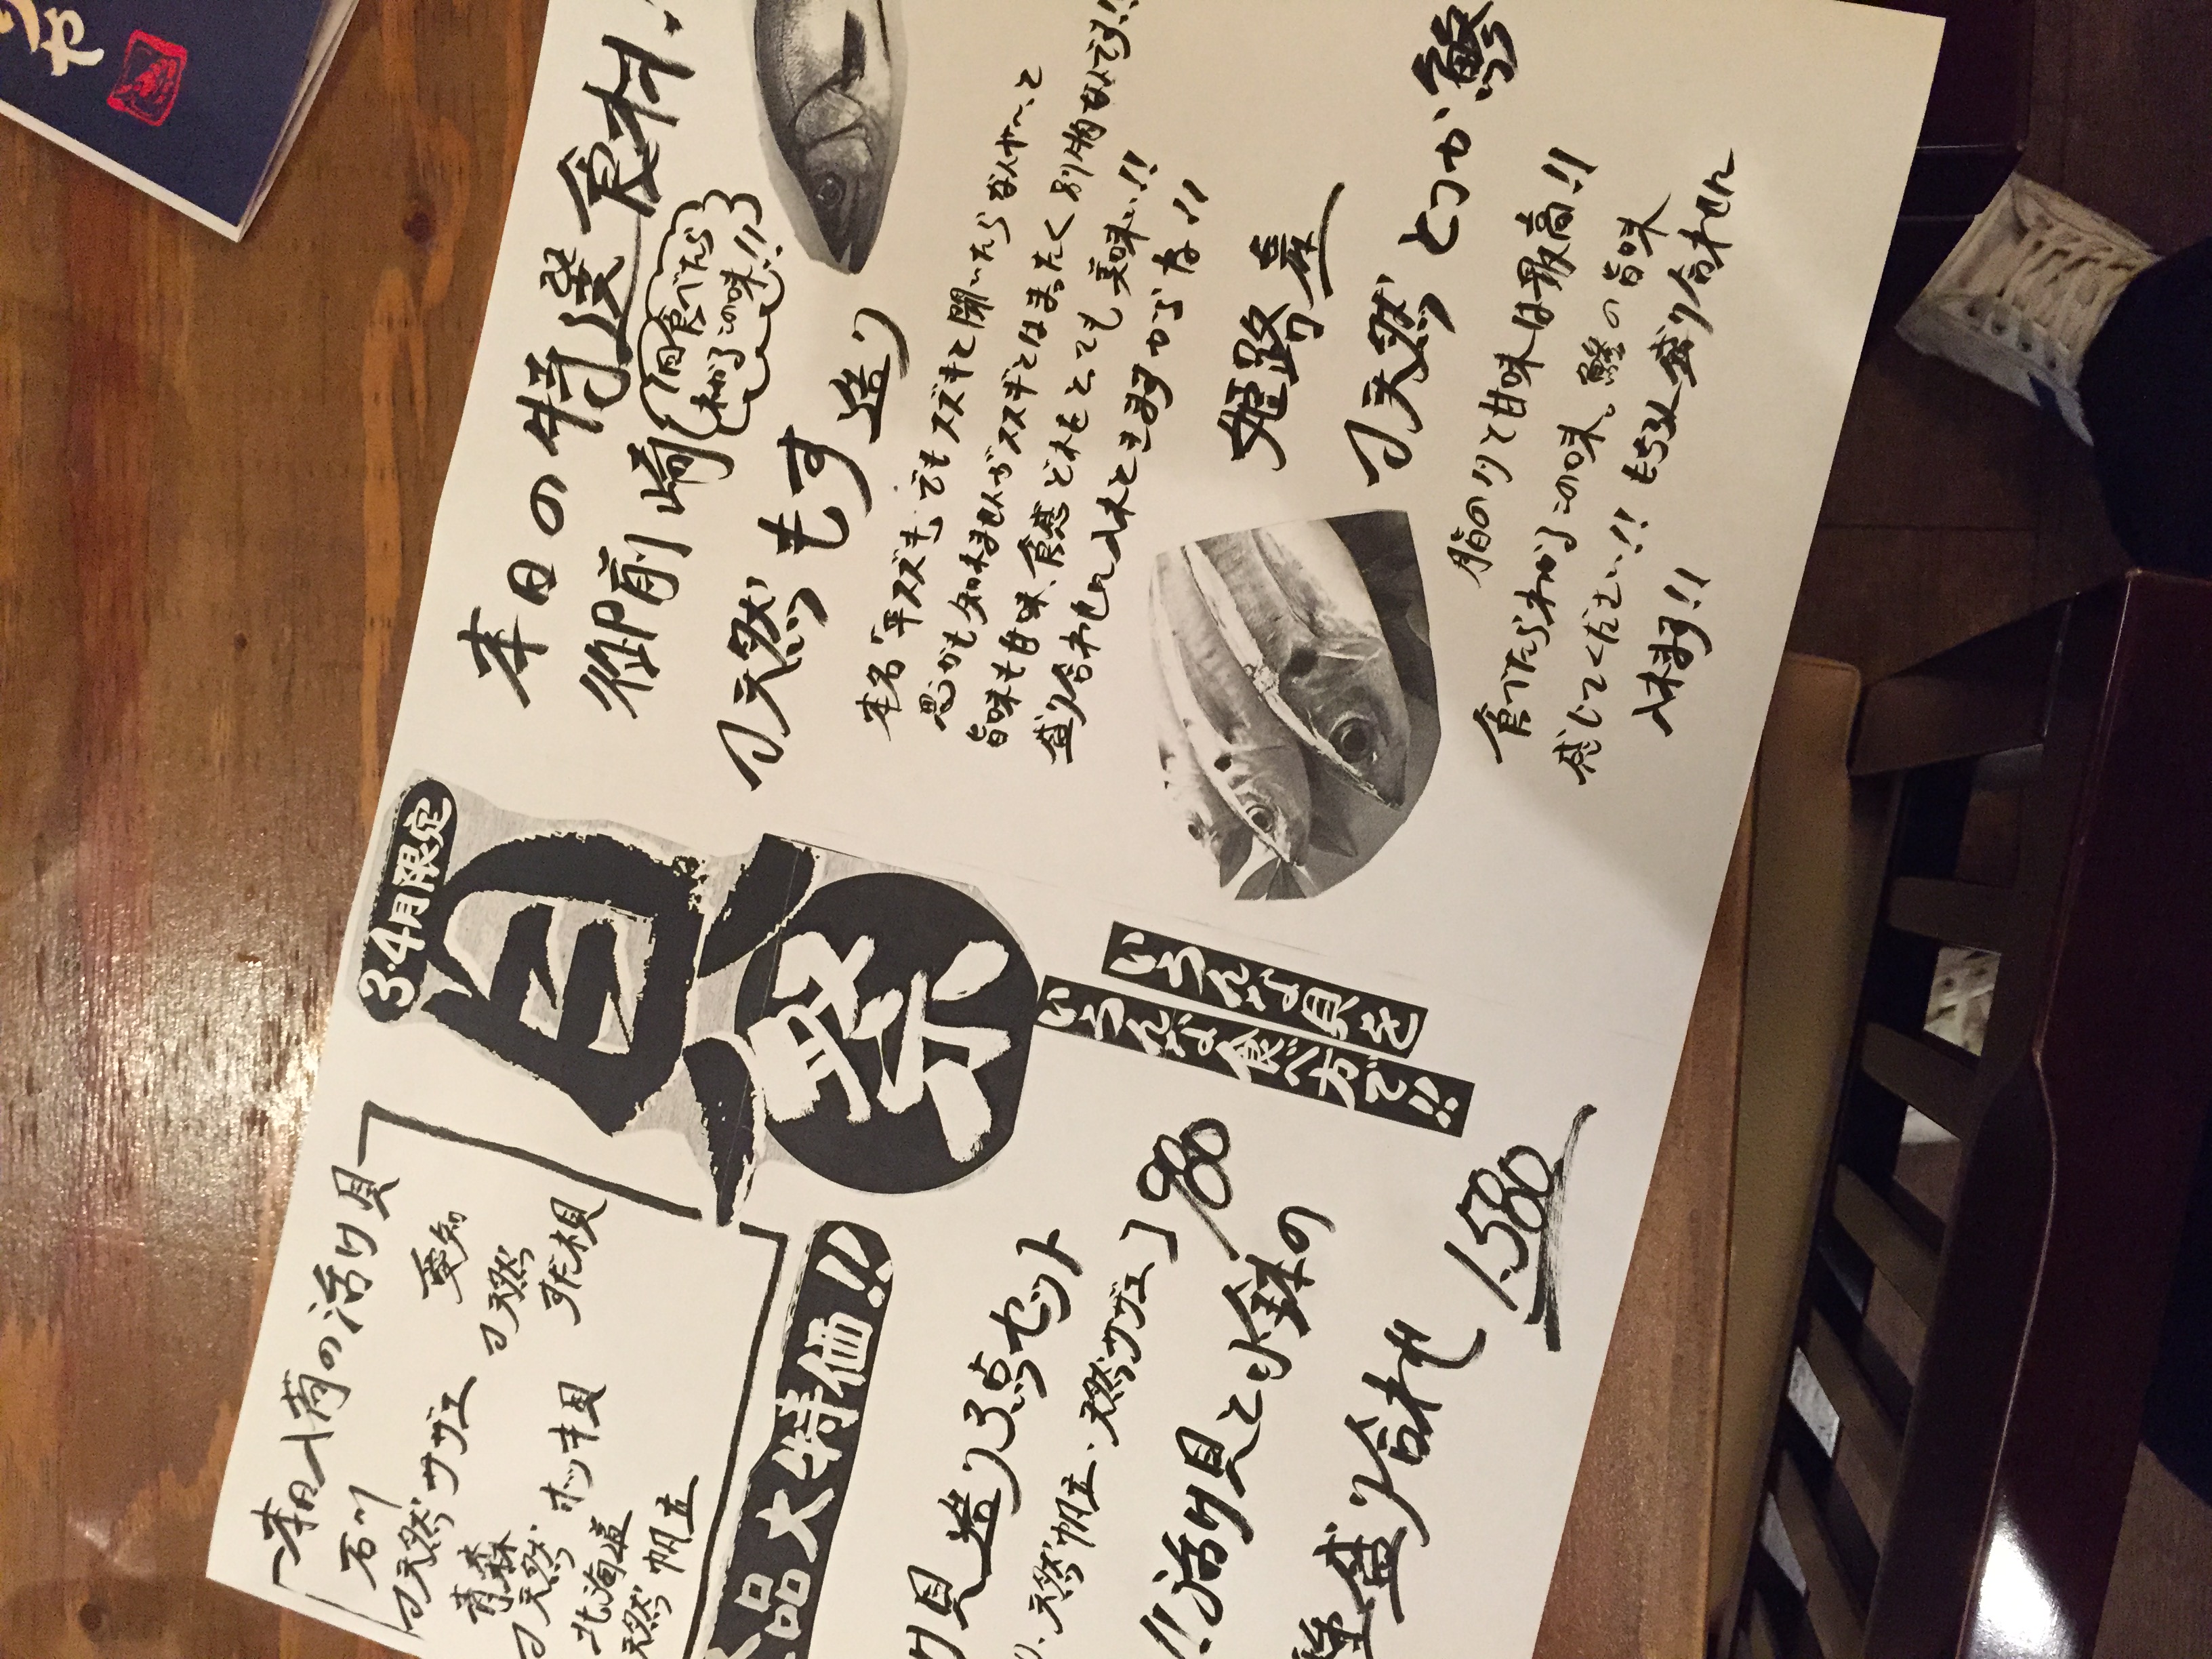 本日の特選食材!
御前崎
一回食べたら
わかるこの味!!
天然もす造り
本名「平スズキ」でもスズキと聞いたらなんや〜と
思うかも知れませんがスズキとはまったく別物なんです!!
旨味も甘味、食感どれをとっても美味い!!
盛り合わせに入れときますからな!!
姫路産
天然とつか鯵
脂のりと甘味は最高!!
食べたらわかるこの味。鯵の旨味
感じてください!!もちろん盛り合わせに
入れます!!
3・4月限定
貝祭
いろんな貝を
いろんな食べ方で!!
本日入荷の活け貝
石川
天然サザエ
愛知
天然
すだれ貝
青森
天然ホッキ貝
北海道
天然帆立
品大特価!!
け貝造り3点セット
天然帆立・天然サザエ〕 980
活け貝と小鉢の
盛り合わせ 1,580